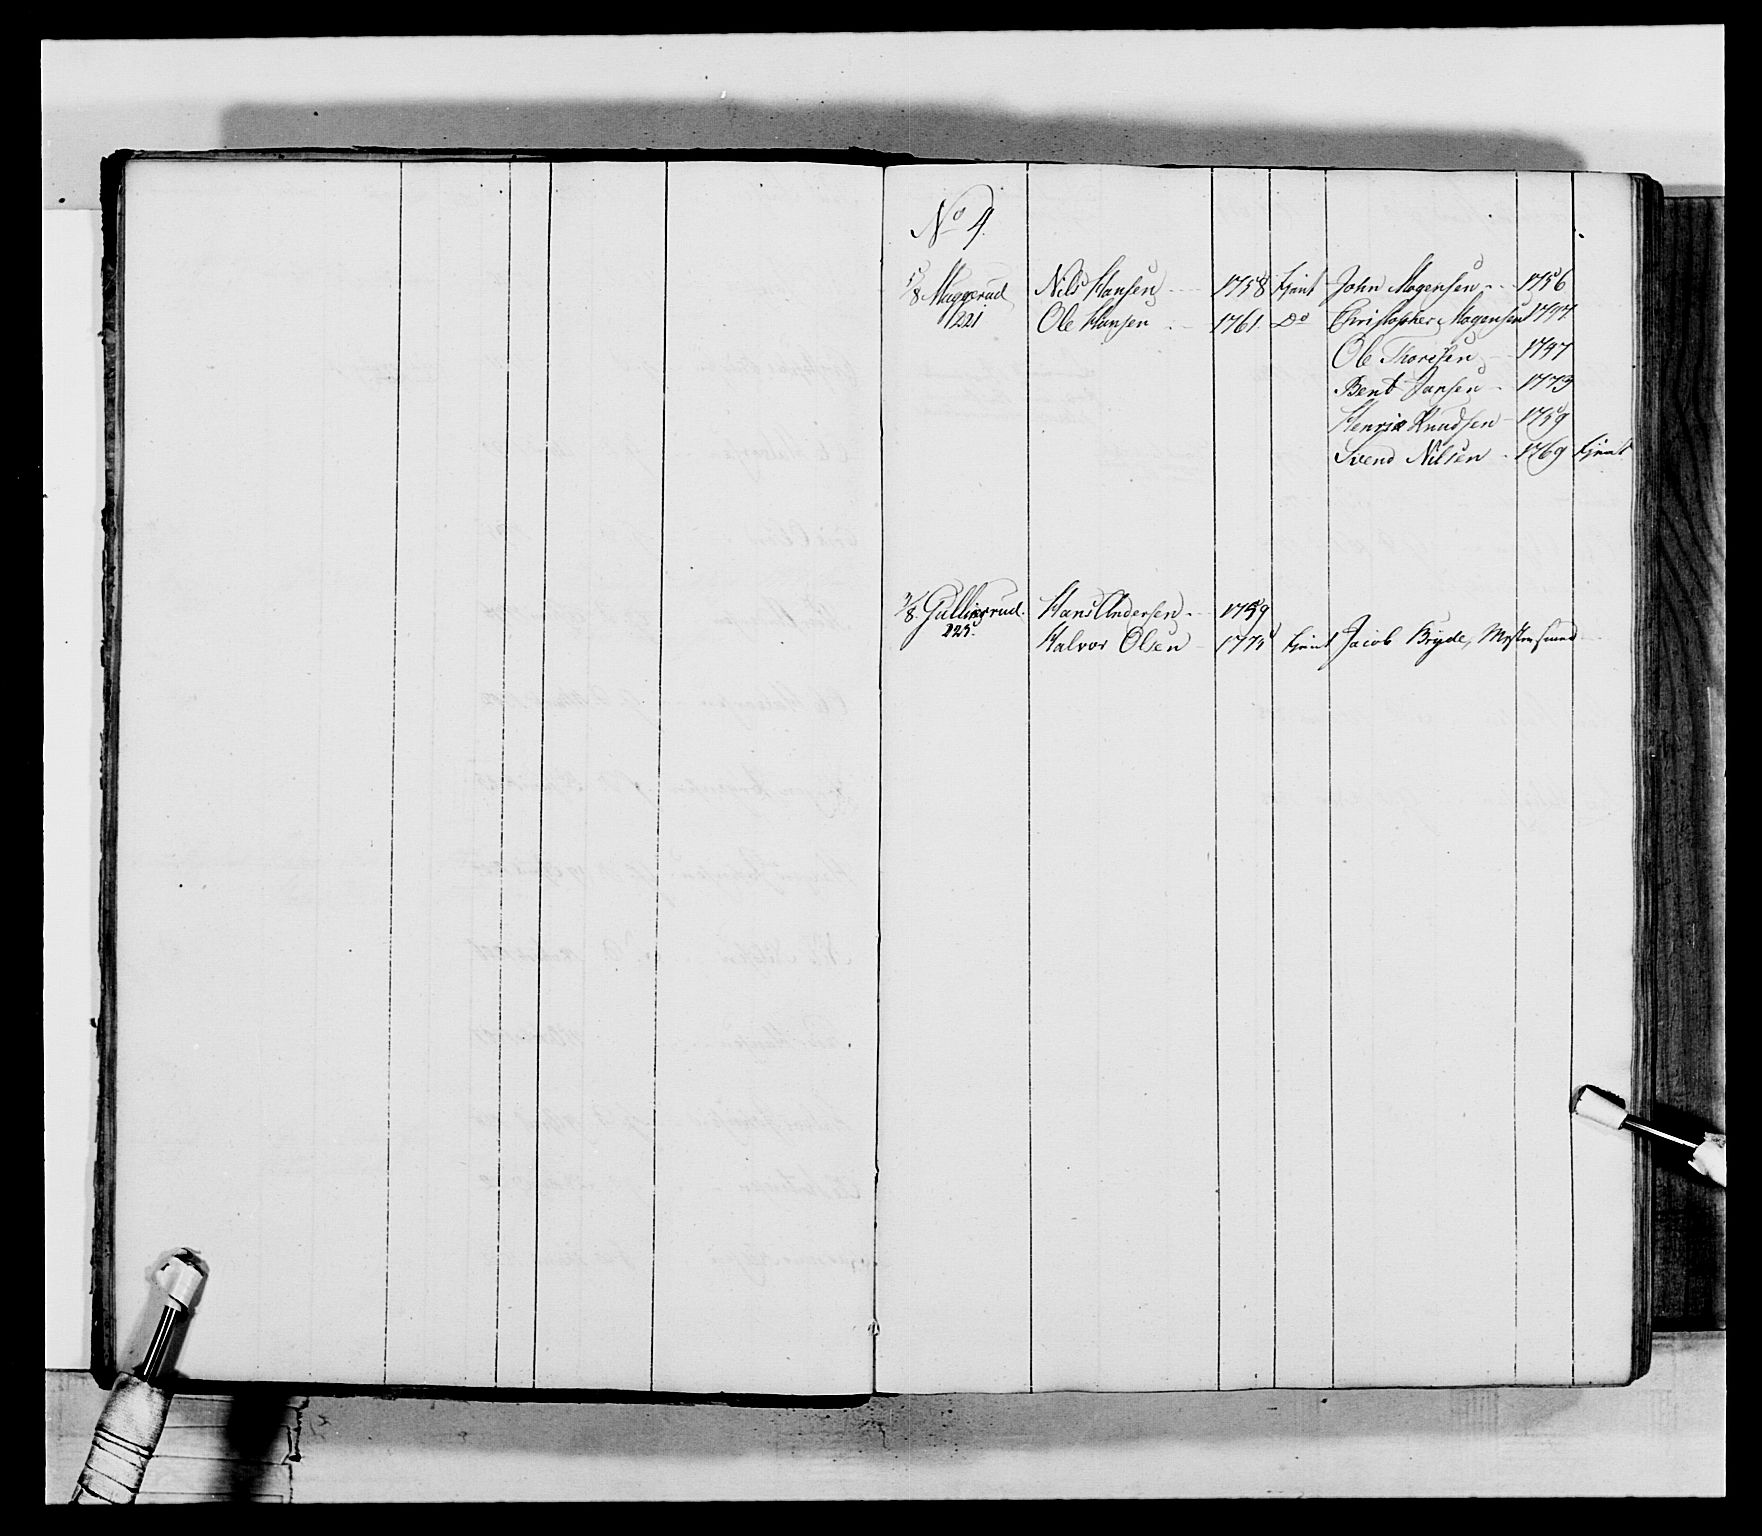 No 4.
5/8 Muggerud Nils Hansen 1758 tient John Mogensen 1756
221 Ole Hansen 1761. Do Christopher Mogensen 1747.
Ole Thoresen 1747
Bent Jansen 1773
Henric Knudsen 1759
Svend Nilsen 1769 tient
8. Gullingrud. Hans Andersen 1759
225. Halvor Olsen 1775 tient Jacob Bryde,